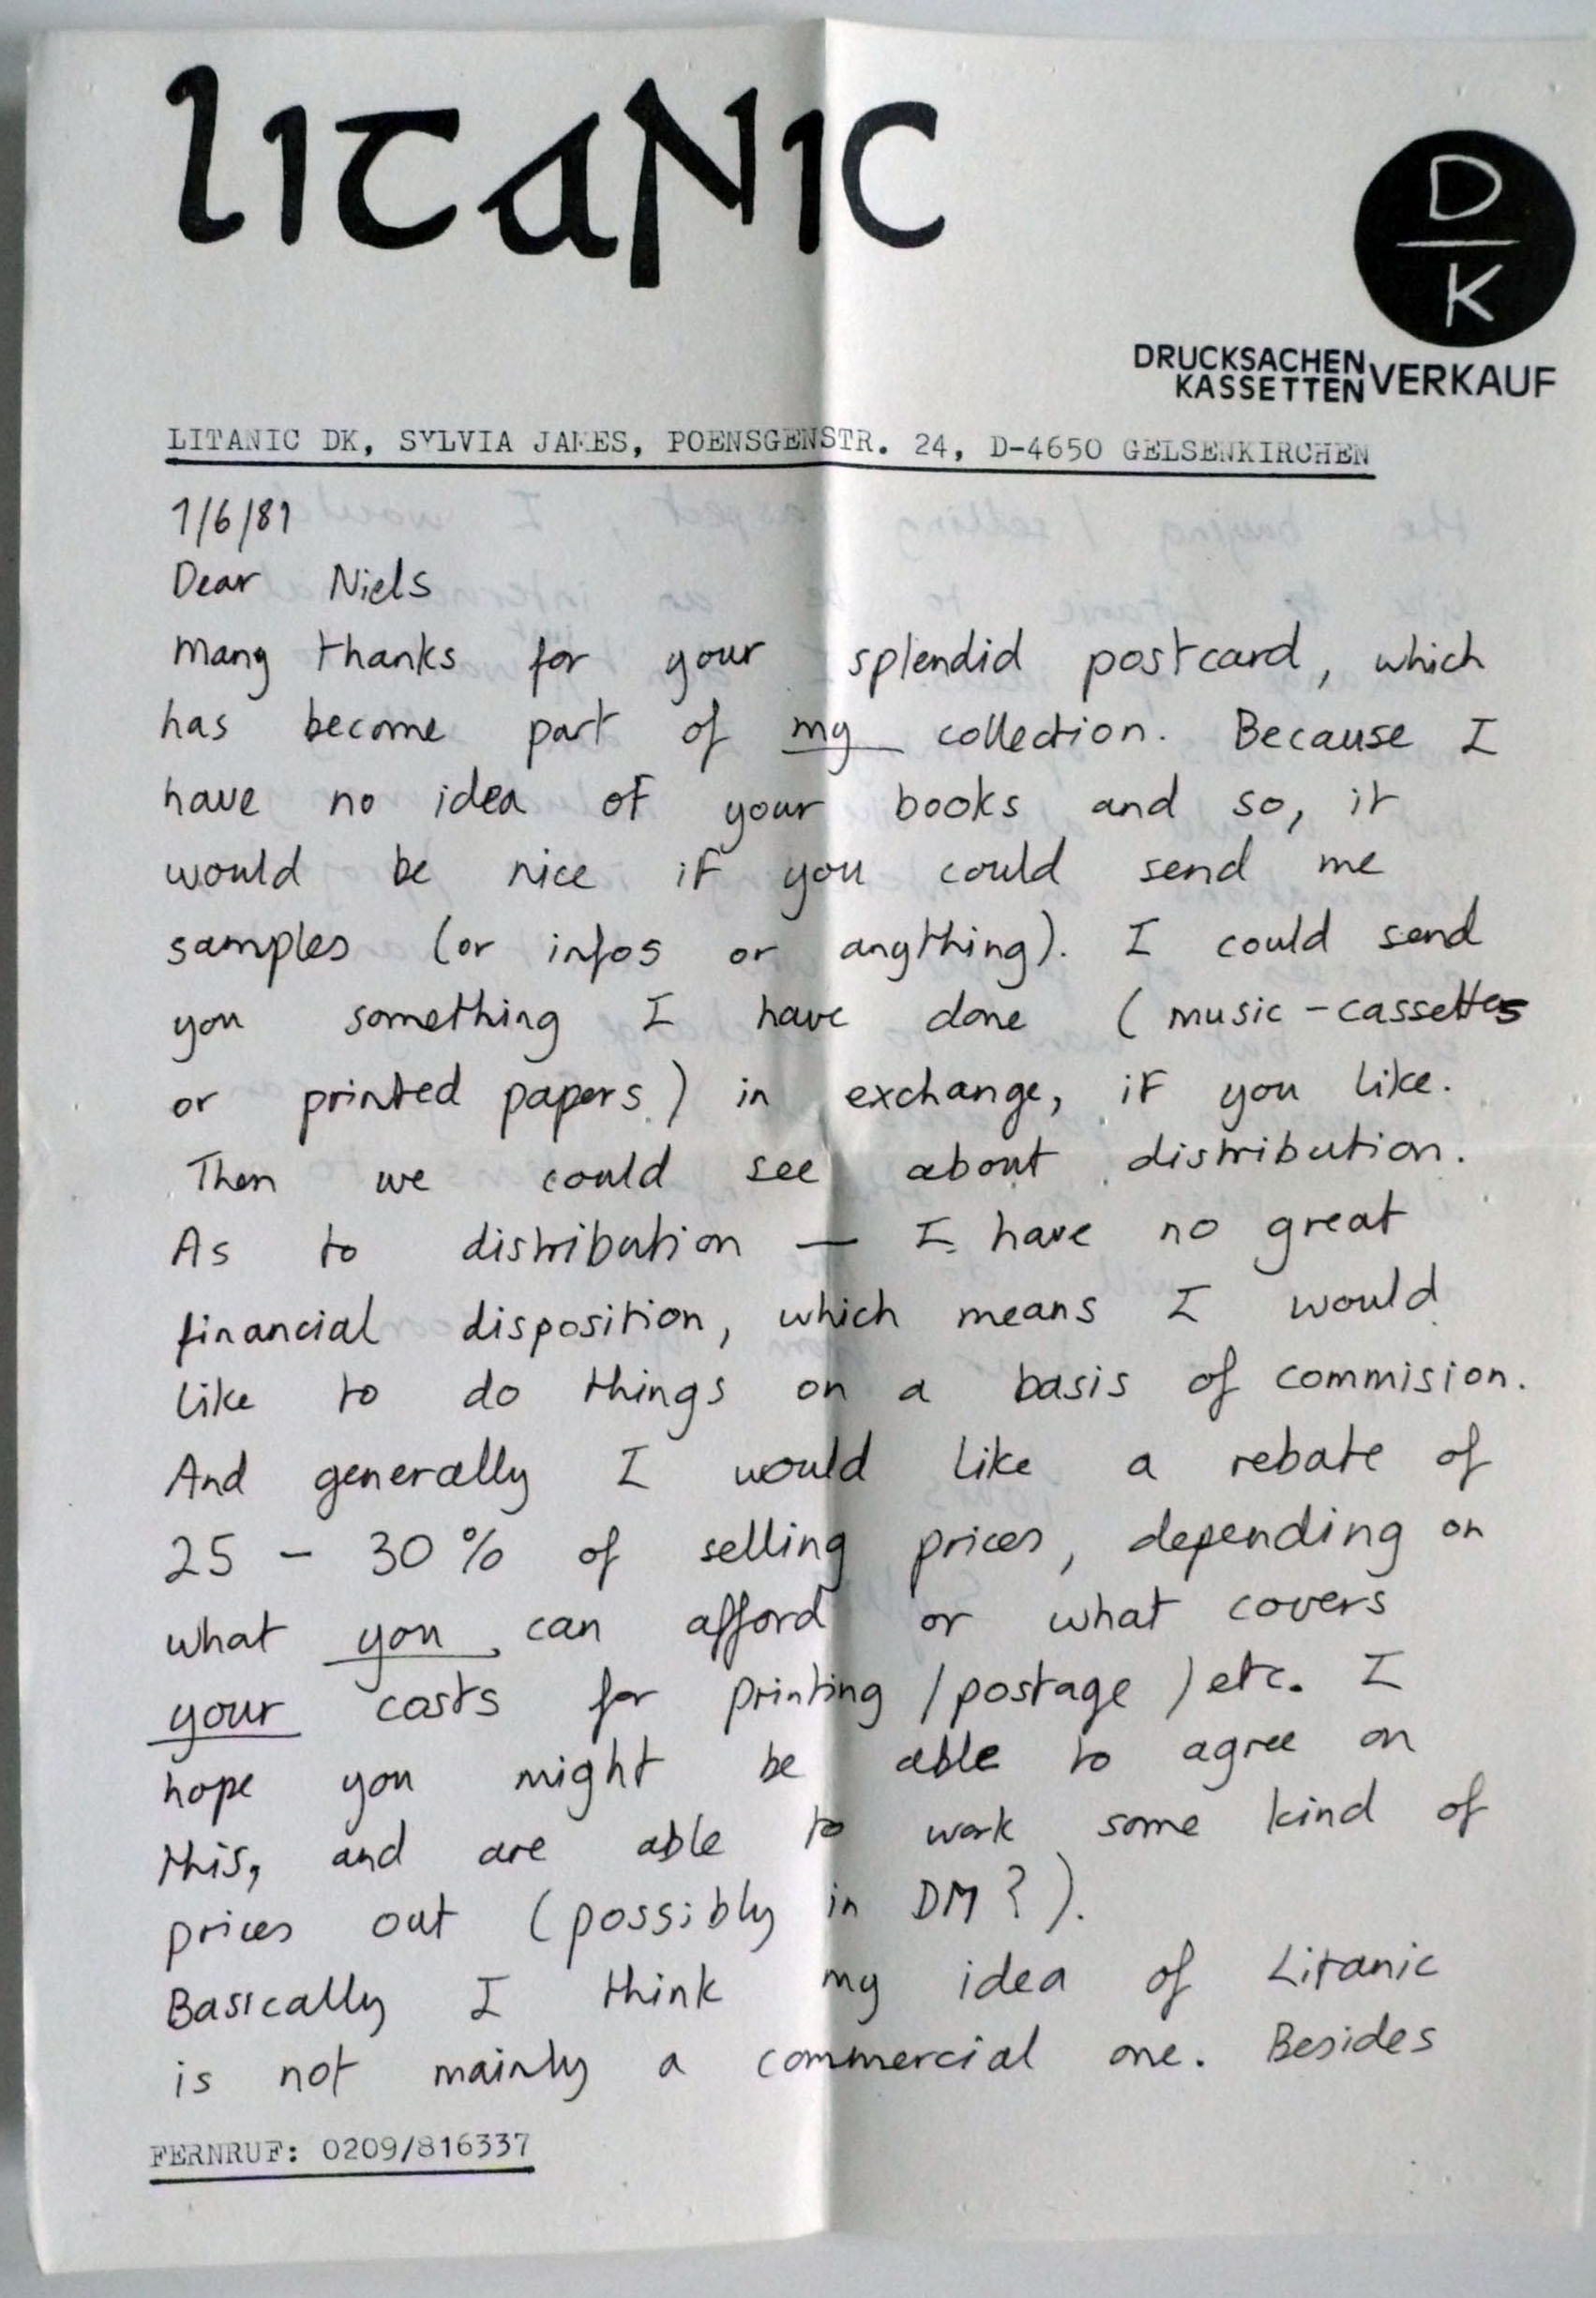 LITANIC
D
K
DRUCKSACHEN
KASSETTEN VERKAUF
LITANIC DK, SYLVIA JAMES, POENSGENSTR. 24, D-4650 GELSENKIRCHEN
1/6/81
Dear Niels
Many thanks for your splendid postcard, which
has become part of my collection. Because I
have no idea of your books and so, it
would be nice if you could send me
samples (or infos or anything). I could send
you something I have done (music-cassettes
or printed papers) in exchange, if you like.
Then we could see about distribution.
As to distribution — I have no great
financial disposition, which means I would
like to do things on a basis of commision.
And generally I would like a rebate of
25 - 30% of selling prices, depending on
what you can afford or what covers
your costs for printing / postage / etc. I
hope you might be able to agree on
this, and are able to work some kind of
prices out (possibly in DM?).
Basically I think my idea of Litanic
is not mainly a commercial one. Besides
FERNRUF: 0209/816337